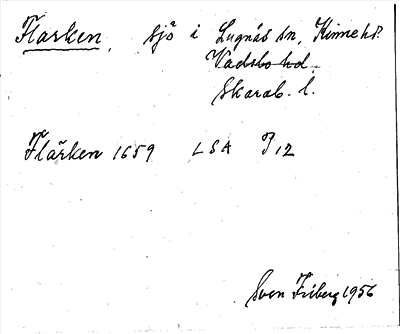 Flarken, sjö i Lugnås sn, Kinne hd.
Vadsbo hd.
Skarab. l.
Flärken 1659 LSA P 12
Sven Friberg 1956